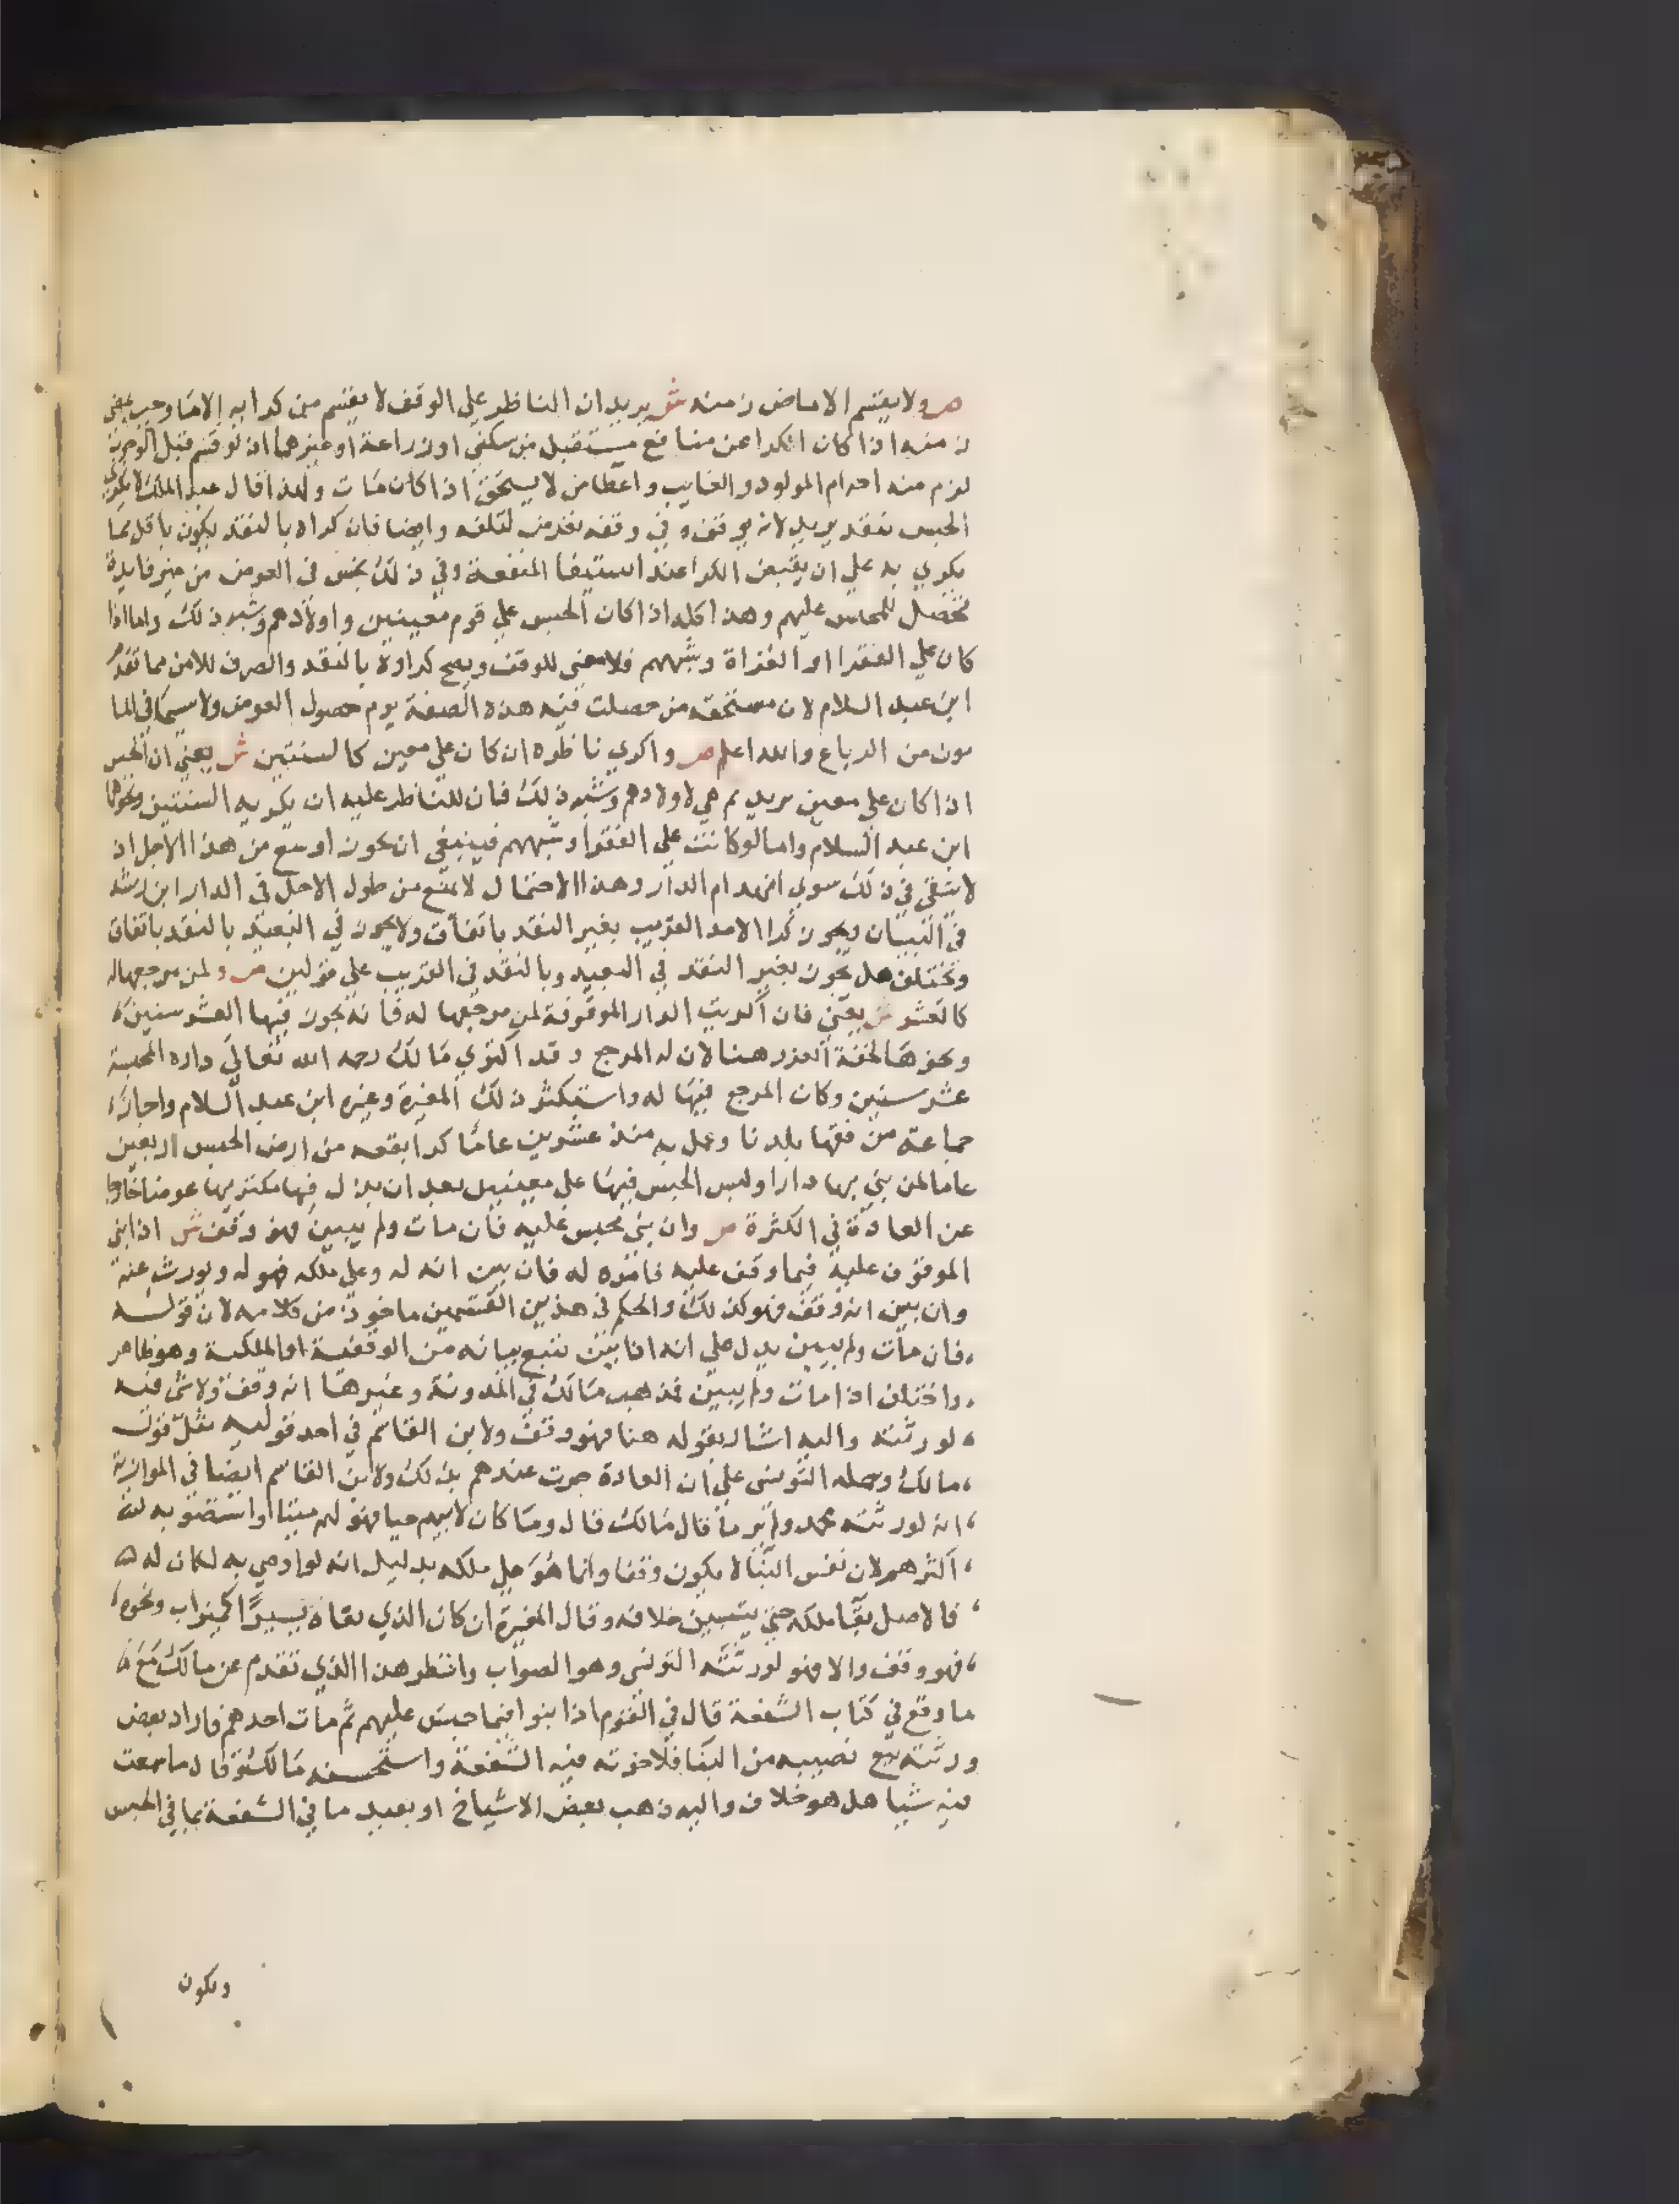 ص ولا يقسم الا ماض زمنه ش يريد ان الناظر علي الوقف لا يقسم من كرايه الا ما وجب بمضي
زمنه اذا كان الكرا عن منافع مستقبل من سكني او زراعة او غيرهما اذ لو قسم قبل الوجوب
لزم منه احرام المولود والغايب واعطا من لا يستحق اذا كان مات ولهذا قال عبد الملك لا يكري
الحبس بنقد يريد لانه يوقف وفي وقفه تعرض لتلفه وايضا فان كراه بالنقد يكون باقل مما
يكري به علي ان يقبض الكرا عند استيفا المنفعة وفي ذلك بخس في العوض من غير فايدة
تحصل للمحبس عليهم وهذا كله اذا كان الحبس علي قوم معينين واولادهم وشبه ذلك واما اذا
كان علي الفقرا او الغزاة وشبههم فلا معني للوقف ويصح كراوه بالنقد والصرف للامن مما تقدم
ابن عبد السلام لان مستحقه من حصلت فيه هذه الصفة يوم حصول العوض ولا سيما في الما
مون من الرباع والله اعلم ص واكري ناظره ان كان علي معين كالسنتين ش يعني ان الحبس
اذا كان علي معين يريد ثم هي لاولادهم وشبه ذلك فان للناظر عليه ان يكريه السنتين ونحوهما
ابن عبد السلام واما لو كانت علي الفقرا وشبههم فينبغي ان يكون اوسع من هذا الاجل اذ
لا يتقي في ذلك سوي انهدام الدار وهذا الاحتمال لا يمنع من طول الاجل في الدار ابن رشد
في البيان ويجوز كرا الامد القريب بغير النقد باتفاق ولا يجوز في البعيد بالنقد باتفاق
ويختلف هل يجوز بغير النقد في البعيد وبالنقد في القريب علي قولين ص ولمن مرجعها له
كالعشر ش يعني فان اكريت الدار الموقوفة لمن مرجعها له فانه يجوز فيها العشر سنين
ونحوها لخفة الغرر هنا لان له المرجع وقد اكتري مالك رحمه الله تعالي داره المحبسة
عشر سنين وكان المرجع فيها له واستكثر ذلك المغيرة وغيره ابن عبد السلام واجازه
جماعة من فقها بلدنا وعمل به منذ عشرين عاما كرا بقعه من ارض الحبس اربعين
عاما لمن يبني بها دارا وليس الحبس فيها علي معينين بعد ان بذل فيها مكتريها عوضا خارجا
عن العادة في الكثرة ص وان بني محبس عليه فان مات ولم يبين فهو وقف ش اذا بني
الموقوف عليه فيما وقف عليه فامره له فان بين انه له وعلي ملكه فهو له ويورث عنه
وان بين انه وقف فهو كذلك والحكم في هذين القسمين ماخوذ من كلامه لان قوله
فان مات ولم يبين يدل علي انه اذا بين تتبع بيانه من الوقفية او الملكية وهو ظاهر
واختلف اذا مات ولم يبين فمذهب مالك في المدونة وغيرها انه وقف ولا شي فيه
لورثته واليه اشار بقوله هنا فهو وقف ولابن القاسم في احد قوليه مثل قول
مالك وحمله التونسي علي ان العادة جرت عندهم بذلك ولابن القاسم ايضا في الموازية
انه لورثته محمد ولم ير ما قال مالك قال وما كان لابيهم حيا فهو لهم ميتا واستضوبه
اكثرهم لان نفس البنا لا يكون وقفا وانما هو علي ملكه بدليل انه لو اوصي به لكان له
فالاصل بقا ملكه حتي يتبين خلافه وقال المغيرة ان كان الذي بناه يسيرا كميزاب ونحوه
فهو وقف والا فهو لورثته التونسي وهو الصواب وانظر هذا الذي تقدم عن مالك مع
ما وقع في كتاب الشفعة قال في القوم اذا بنوا فيما حبس عليهم ثم مات احدهم فاراد بعض
ورثته بيع نصيبه من البنا فلاخوته فيه الشفعة واستحسنه مالك وقال ما سمعت
فيه شيا هل هو خلاف واليه ذهب بعض الاشياخ او يعيد ما في الشفعة بما في الحبس
ويكون